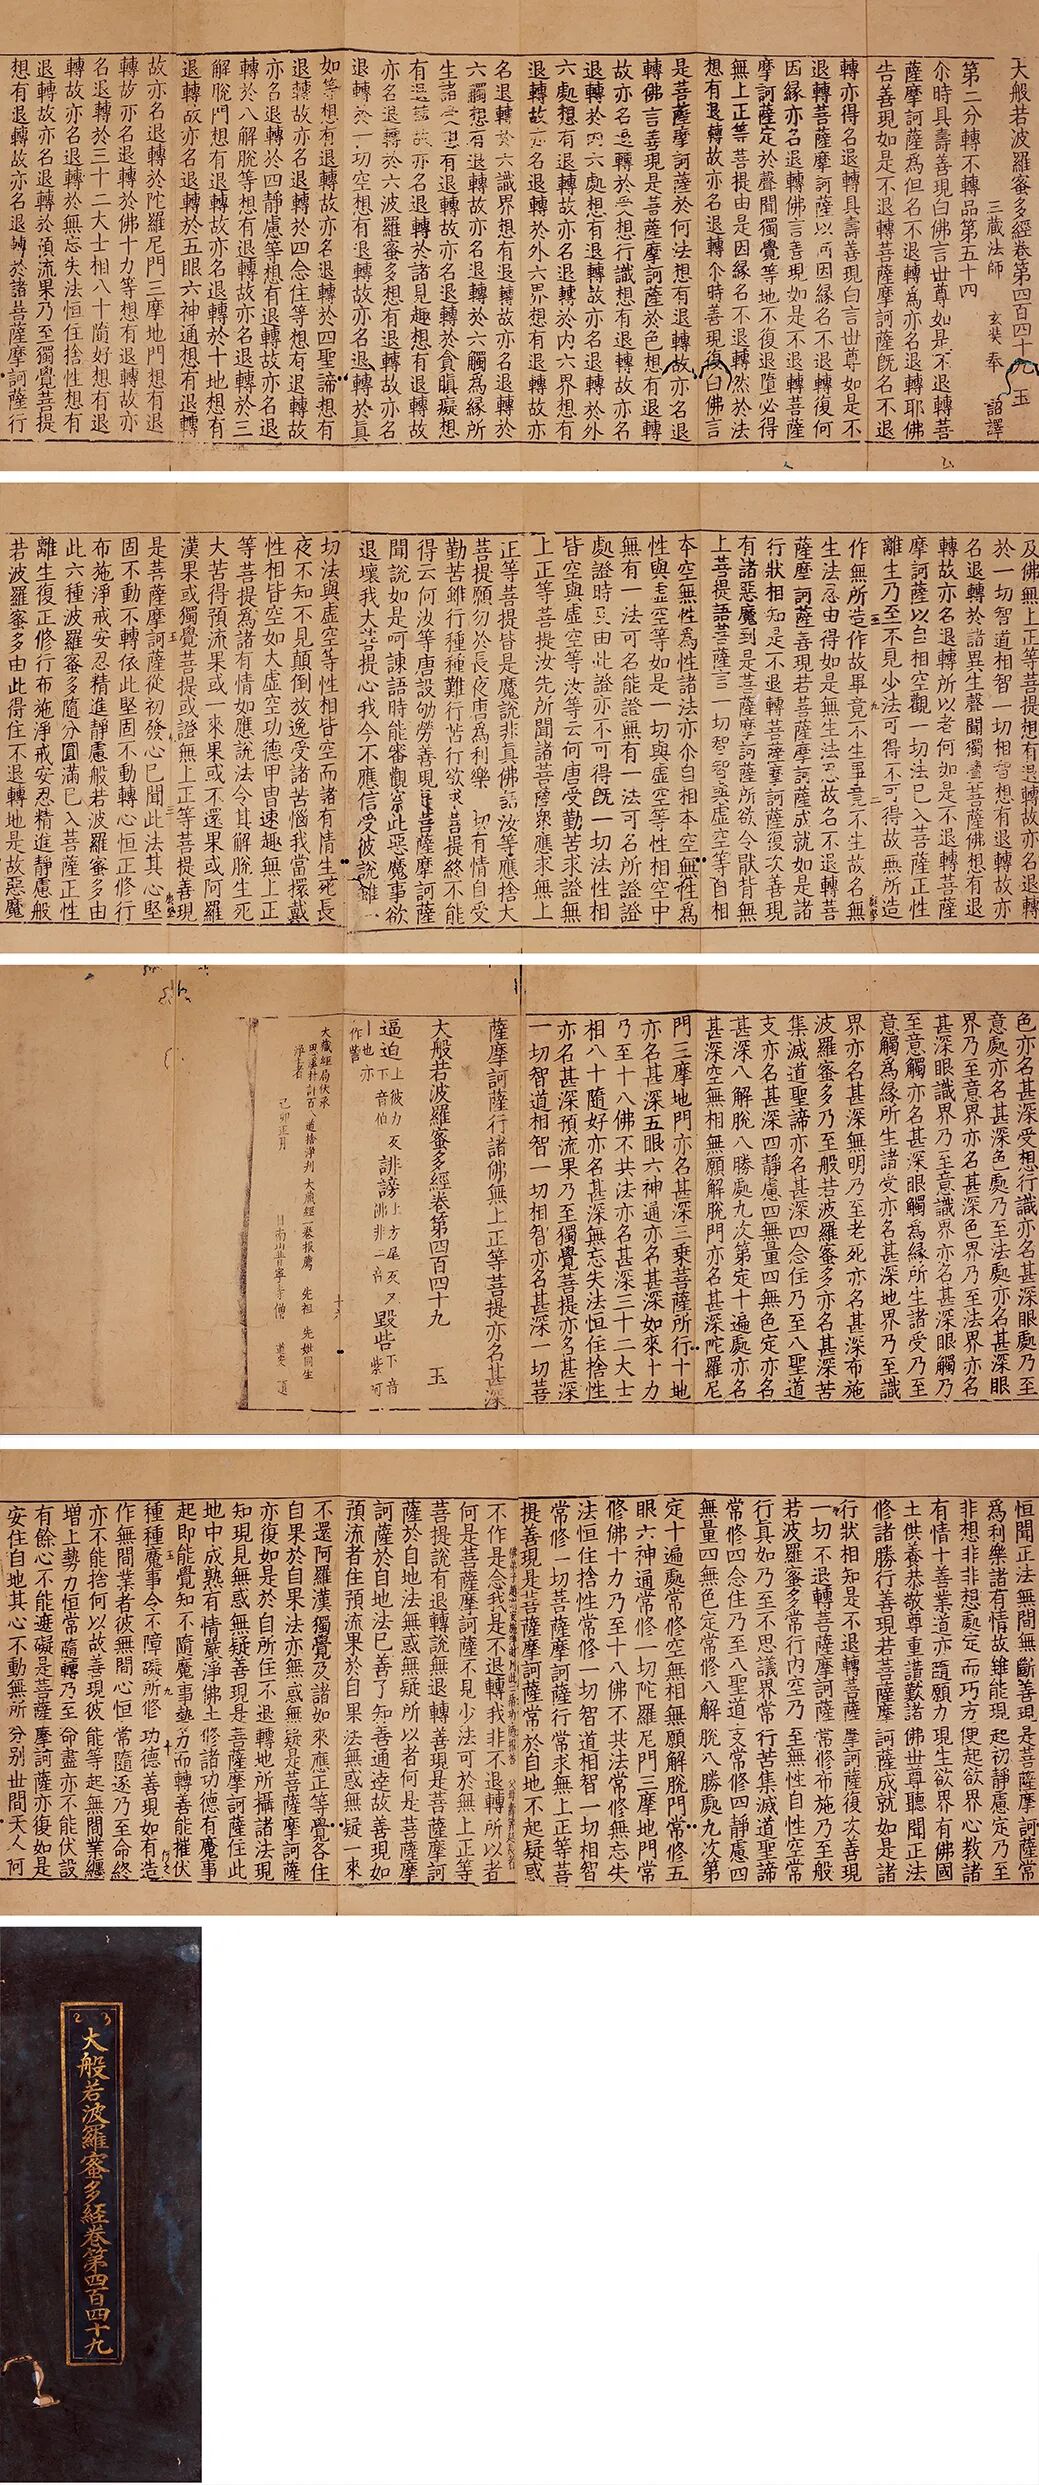 大般若波羅蜜多經卷第四百四十九 玉
三藏法師 玄奘奉 詔譯
第二分轉不轉品第五十四
尒時具壽善現白佛言世尊如是不退轉菩
薩摩訶薩爲但名不退轉爲亦名退轉耶佛
告善現如是不退轉菩薩摩訶薩旣名不退
轉亦得名退轉具壽善現白言世尊如是不
退轉菩薩摩訶薩以何因緣名不退轉復何
因緣亦名退轉佛言善現如是不退轉菩薩
摩訶薩定於聲聞獨覺等地不復退墮必得
無上正等菩提由是因緣名不退轉然於法
想有退轉故亦名退轉尒時善現復白佛言
是菩薩摩訶薩於何法想有退轉故亦名退
轉佛言善現是菩薩摩訶薩於色想有退轉
故亦名退轉於受想行識想有退轉故亦名
退轉於內六處想有退轉故亦名退轉於外
六處想有退轉故亦名退轉於內六界想有
退轉故亦名退轉於外六界想有退轉故亦
名退轉於六識界想有退轉故亦名退轉於
六觸想有退轉故亦名退轉於六觸爲緣所
生諸受想有退轉故亦名退轉於貪瞋癡想
有退轉故亦名退轉於諸見趣想有退轉故
亦名退轉於六波羅蜜多想有退轉故亦名
退轉於一切空想有退轉故亦名退轉於眞
如等想有退轉故亦名退轉於四聖諦想有
退轉故亦名退轉於四念住等想有退轉故
亦名退轉於四靜慮等想有退轉故亦名退
轉於八解脫等想有退轉故亦名退轉於三
解脫門想有退轉故亦名退轉於十地想有
退轉故亦名退轉於五眼六神通想有退轉
故亦名退轉於陀羅尼門三摩地門想有退
轉故亦名退轉於佛十力等想有退轉故亦
名退轉於三十二大士相八十隨好想有退
轉故亦名退轉於無忘失法恒住捨性想有
退轉故亦名退轉於預流果乃至獨覺菩提
想有退轉故亦名退轉於諸菩薩摩訶薩行
及佛無上正等菩提想有退轉故亦名退轉
於一切智道相智一切相智想有退轉故亦
名退轉於諸異生聲聞獨覺菩薩佛想有退
轉故亦名退轉所以者何如是不退轉菩薩
摩訶薩以自相空觀一切法已入菩薩正性
離生乃至不見少法可得不可得故無所造
作無所造作故畢竟不生畢竟不生故名無
生法忍由得如是無生法忍故名不退轉菩
薩摩訶薩善現若菩薩摩訶薩成就如是諸
行狀相知是不退轉菩薩摩訶薩復次善現
有諸惡魔到是菩薩摩訶薩所欲令猒背無
上菩提語菩薩言一切智智與虛空等自相
本空無性爲性諸法亦尒自相本空無性爲
性與虛空等如是一切與虛空等性相空中
無有一法可名能證無有一法可名所證證
處證時及由此證亦不可得旣一切法性相
皆空與虛空等汝等云何唐受勤苦求證無
上正等菩提汝先所聞諸菩薩衆應求無上
正等菩提皆是魔說非眞佛語汝等應捨大
菩提願勿於長夜唐爲利樂一切有情自受
勤苦雖行種種難行苦行欲求菩提終不能
得云何汝等唐設劬勞善現是菩薩摩訶薩
聞說如是呵諫語時能審觀察此惡魔事欲
退壞我大菩提心我今不應信受彼說雖一
切法與虛空等性相皆空而諸有情生死長
夜不知不見顛倒放逸受諸苦惱我當擐戴
性相皆空如大虛空功德甲冑速趣無上正
等菩提爲諸有情如應說法令其解脫生死
大苦得預流果或一來果或不還果或阿羅
漢果或獨覺菩提或證無上正等菩提善現
是菩薩摩訶薩從初發心已聞此法其心堅
固不動不轉依此堅固不動轉心恒正修行
布施淨戒安忍精進靜慮般若波羅蜜多由
此六種波羅蜜多隨分圓滿已入菩薩正性
離生復正修行布施淨戒安忍精進靜慮般
若波羅蜜多由此得住不退轉地是故惡魔
色亦名甚深受想行識亦名甚深眼處乃至
意處亦名甚深色處乃至法處亦名甚深眼
界乃至意界亦名甚深色界乃至法界亦名
甚深眼識界乃至意識界亦名甚深眼觸乃
至意觸亦名甚深眼觸爲緣所生諸受乃至
意觸爲緣所生諸受亦名甚深地界乃至識
界亦名甚深無明乃至老死亦名甚深布施
波羅蜜多乃至般若波羅蜜多亦名甚深苦
集滅道聖諦亦名甚深四念住乃至八聖道
支亦名甚深四靜慮四無量四無色定亦名
甚深八解脫八勝處九次第定十遍處亦名
甚深空無相無願解脫門亦名甚深陀羅尼
門三摩地門亦名甚深三乘菩薩所行十地
亦名甚深五眼六神通亦名甚深如來十力
乃至十八佛不共法亦名甚深三十二大士
相八十隨好亦名甚深無忘失法恒住捨性
亦名甚深預流果乃至獨覺菩提亦名甚深
一切智道相智一切相智亦名甚深一切菩
薩摩訶薩行諸佛無上正等菩提亦名甚深
大般若波羅蜜多經卷第四百四十九 玉
逼迫 上彼力反下音伯 誹謗 上方尾反又沸非二音 毀呰 下音紫呵也亦作訾
十六
大藏經局伏承
己卯正月
恒聞正法無間無斷善現是菩薩摩訶薩常
爲利樂諸有情故雖能現起初靜慮定乃至
非想非非想處定而巧方便起欲界心教諸
有情十善業道亦隨願力現生欲界有佛國
土供養恭敬尊重讚歎諸佛世尊聽聞正法
修諸勝行善現若菩薩摩訶薩成就如是諸
行狀相知是不退轉菩薩摩訶薩復次善現
一切不退轉菩薩摩訶薩常修布施乃至般
若波羅蜜多常行內空乃至無性自性空常
行眞如乃至不思議界常行苦集滅道聖諦
常修四念住乃至八聖道支常修四靜慮四
無量四無色定常修八解脫八勝處九次第
定十遍處常修空無相無願解脫門常修五
眼六神通常修一切陀羅尼門三摩地門常
修佛十力乃至十八佛不共法常修無忘失
法恒住捨性常修一切智道相智一切相智
常修一切菩薩摩訶薩行常求無上正等菩
提善現是菩薩摩訶薩常於自地不起疑惑
不作是念我是不退轉我非不退轉所以者
何是菩薩摩訶薩不見少法可於無上正等
菩提說有退轉說無退轉善現是菩薩摩訶
薩於自地法無惑無疑所以者何是菩薩摩
訶薩於自地法已善了知善通達故善現如
預流者住預流果於自果法無惑無疑一來
不還阿羅漢獨覺及諸如來應正等覺各住
自果於自果法亦無惑無疑是菩薩摩訶薩
亦復如是於自所住不退轉地所攝諸法現
知現見無惑無疑善現是菩薩摩訶薩住此
地中成熟有情嚴淨佛土修諸功德有魔事
起即能覺知不隨魔事勢力而轉善能摧伏
種種魔事令不障礙所修功德善現如有造
作無間業者彼無間心恒常隨逐乃至命終
亦不能捨何以故善現彼能等起無間業纏
增上勢力恒常隨轉乃至命盡亦不能伏設
有餘心不能遮礙是菩薩摩訶薩亦復如是
安住自地其心不動無所分別世間天人阿
大般若波羅蜜多經卷第四百四十九